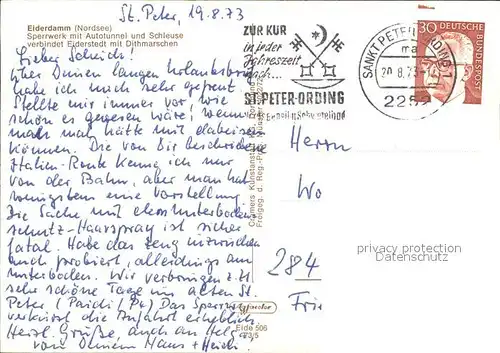 St. Peter, 19.8.73
Eiderdamm (Nordsee)
Sperrwerk mit Autotunnel und Schleuse
verbindet Eiderstedt mit Dithmarschen
Lieber Scheich!
Über Deinen langen Urlaubsbrief
habe ich mich sehr gefreut.
Stellte mir immer vor, wie
schön es gewesen wäre, wenn
man hätte mit dabeisein
können. Die von Dir beschriebene
Italien-Route kenne ich nur
von der Bahn, aber man hat
wenigstens eine Vorstellung.
Die Sache mit dem Unterboden-
schutz-Haarspray ist sicher
fatal. Habe das Zeug inzwischen
auch probiert, allerdings am
Unterboden. Wir verbringen z.Zt
sehr schöne Tage im alten St.
Peter (Paidi/Pk) Das Sperrwerk
verkürzt die Anfahrt erheblich
Herzl. Grüße, auch an Helga
von Deinem Hans + Heidi
Cramers Kunstanstalt KG, Dortmund
Freigeg. d. Reg.-Präs. Münster
Eide 506
ZUR KUR
in jeder
Jahreszeit
nach...
ST. PETER-ORDING
Nordseeheil- u Schwefelbad
SANKT PETER-ORDING 1
ma
20.8.73
2252
30
DEUTSCHE
BUNDESPOST
Herrn
Wo
284
Frie
privacy protection
Datenschutz